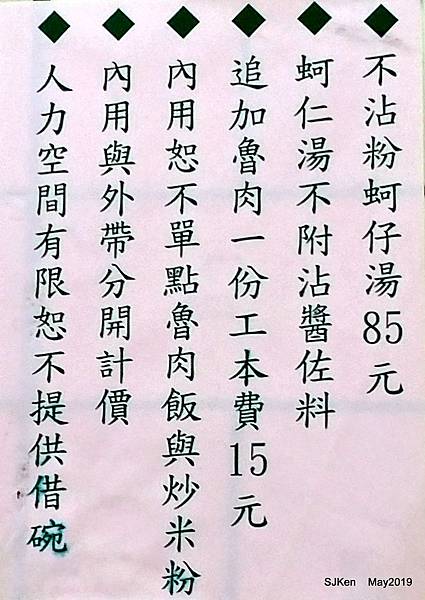 ◆不沾粉蚵仔湯85元
◆蚵仁湯不附沾醬佐料
◆追加魯肉一份工本費15元
◆內用恕不單點魯肉飯與炒米粉
◆內用與外帶分開計價
◆人力空間有限恕不提供借碗
SJKen May2019